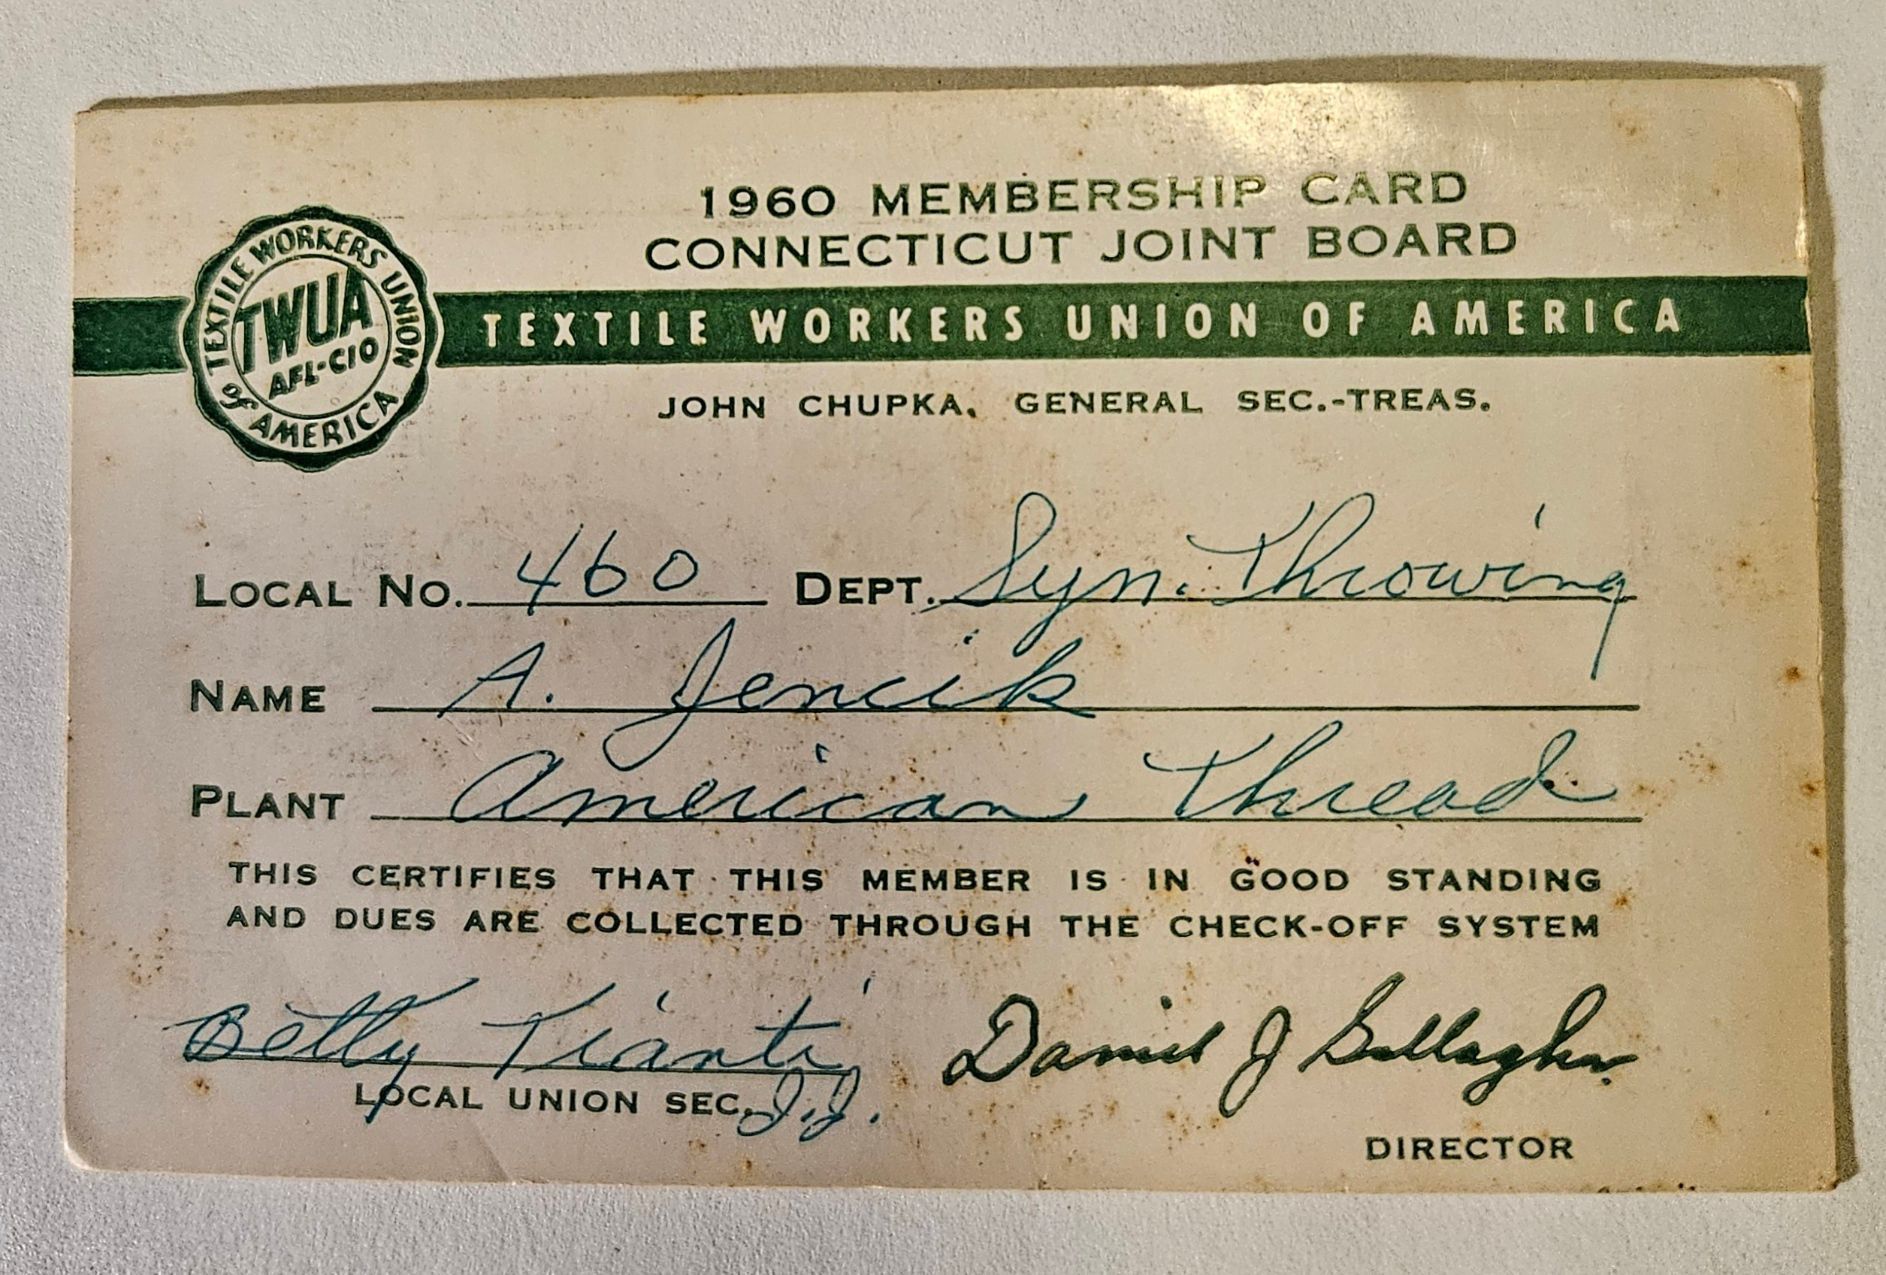 1960 MEMBERSHIP CARD
CONNECTICUT JOINT BOARD
TEXTILE WORKERS UNION of AMERICA
TWUA
AFL-CIO
TEXTILE WORKERS UNION OF AMERICA
JOHN CHUPKA, GENERAL SEC.-TREAS.
LOCAL NO. 460 DEPT. Syn. Throwing
NAME A. Jencik
PLANT American Thread
THIS CERTIFIES THAT THIS MEMBER IS IN GOOD STANDING
AND DUES ARE COLLECTED THROUGH THE CHECK-OFF SYSTEM
Betty Tianti Daniel J Gallagher
LOCAL UNION SEC. J.J.
DIRECTOR